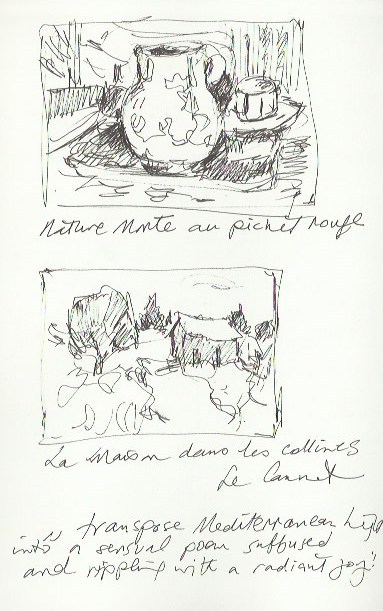 Nature Morte au pichet rouge
La Maison dans les collines
Le Cannet
" transpose Mediterranean light
into a sensual poem suffused
and rippling with a radiant joy"